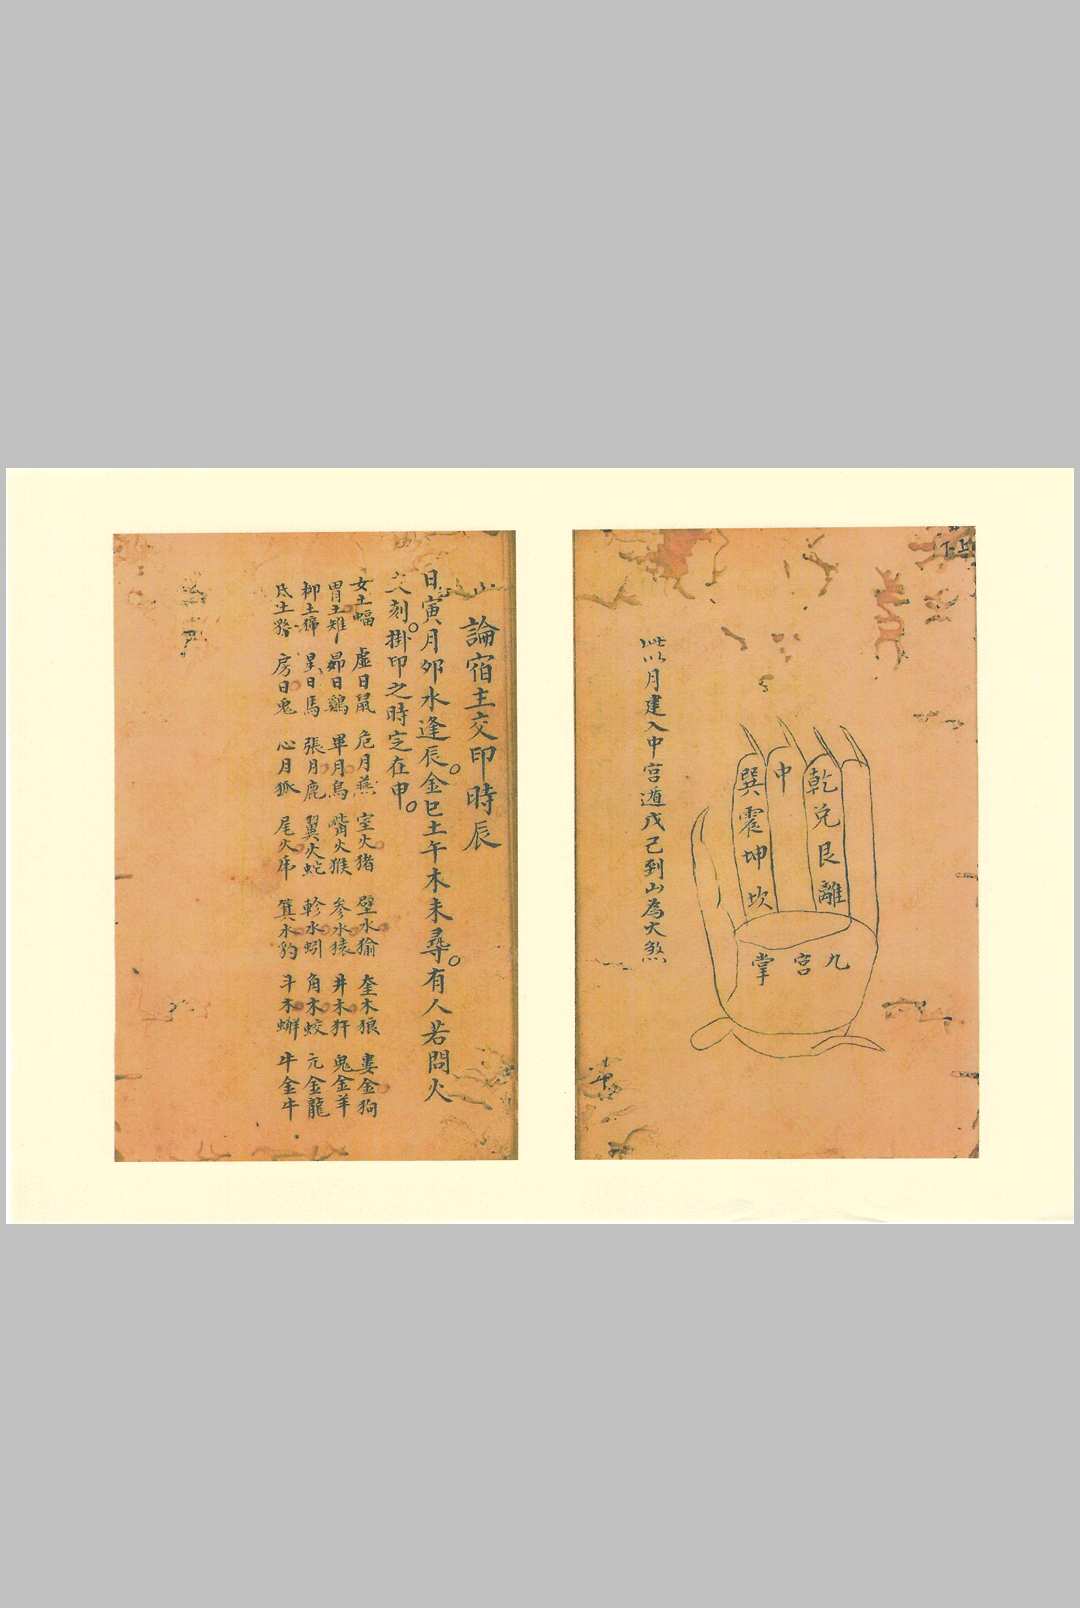 乾兌艮離
中
巽震坤坎
九宮掌
此以月建入中宮遁戊己到山為大煞
論宿主交印時辰
日寅月卯水逢辰。金巳土午木未尋。有人若問火
交刻。掛印之時定在申。
女土蝠 虛日鼠 危月燕 室火猪 壁水㺄 奎木狼 婁金狗
胃土雉 昴日鷄 畢月烏 觜火猴 参水猿 井木犴 鬼金羊
柳土獐 星日馬 張月鹿 翼火蛇 軫水蚓 角木蛟 亢金龍
氐土貉 房日兔 心月狐 尾火虎 箕水豹 斗木蠏 牛金牛